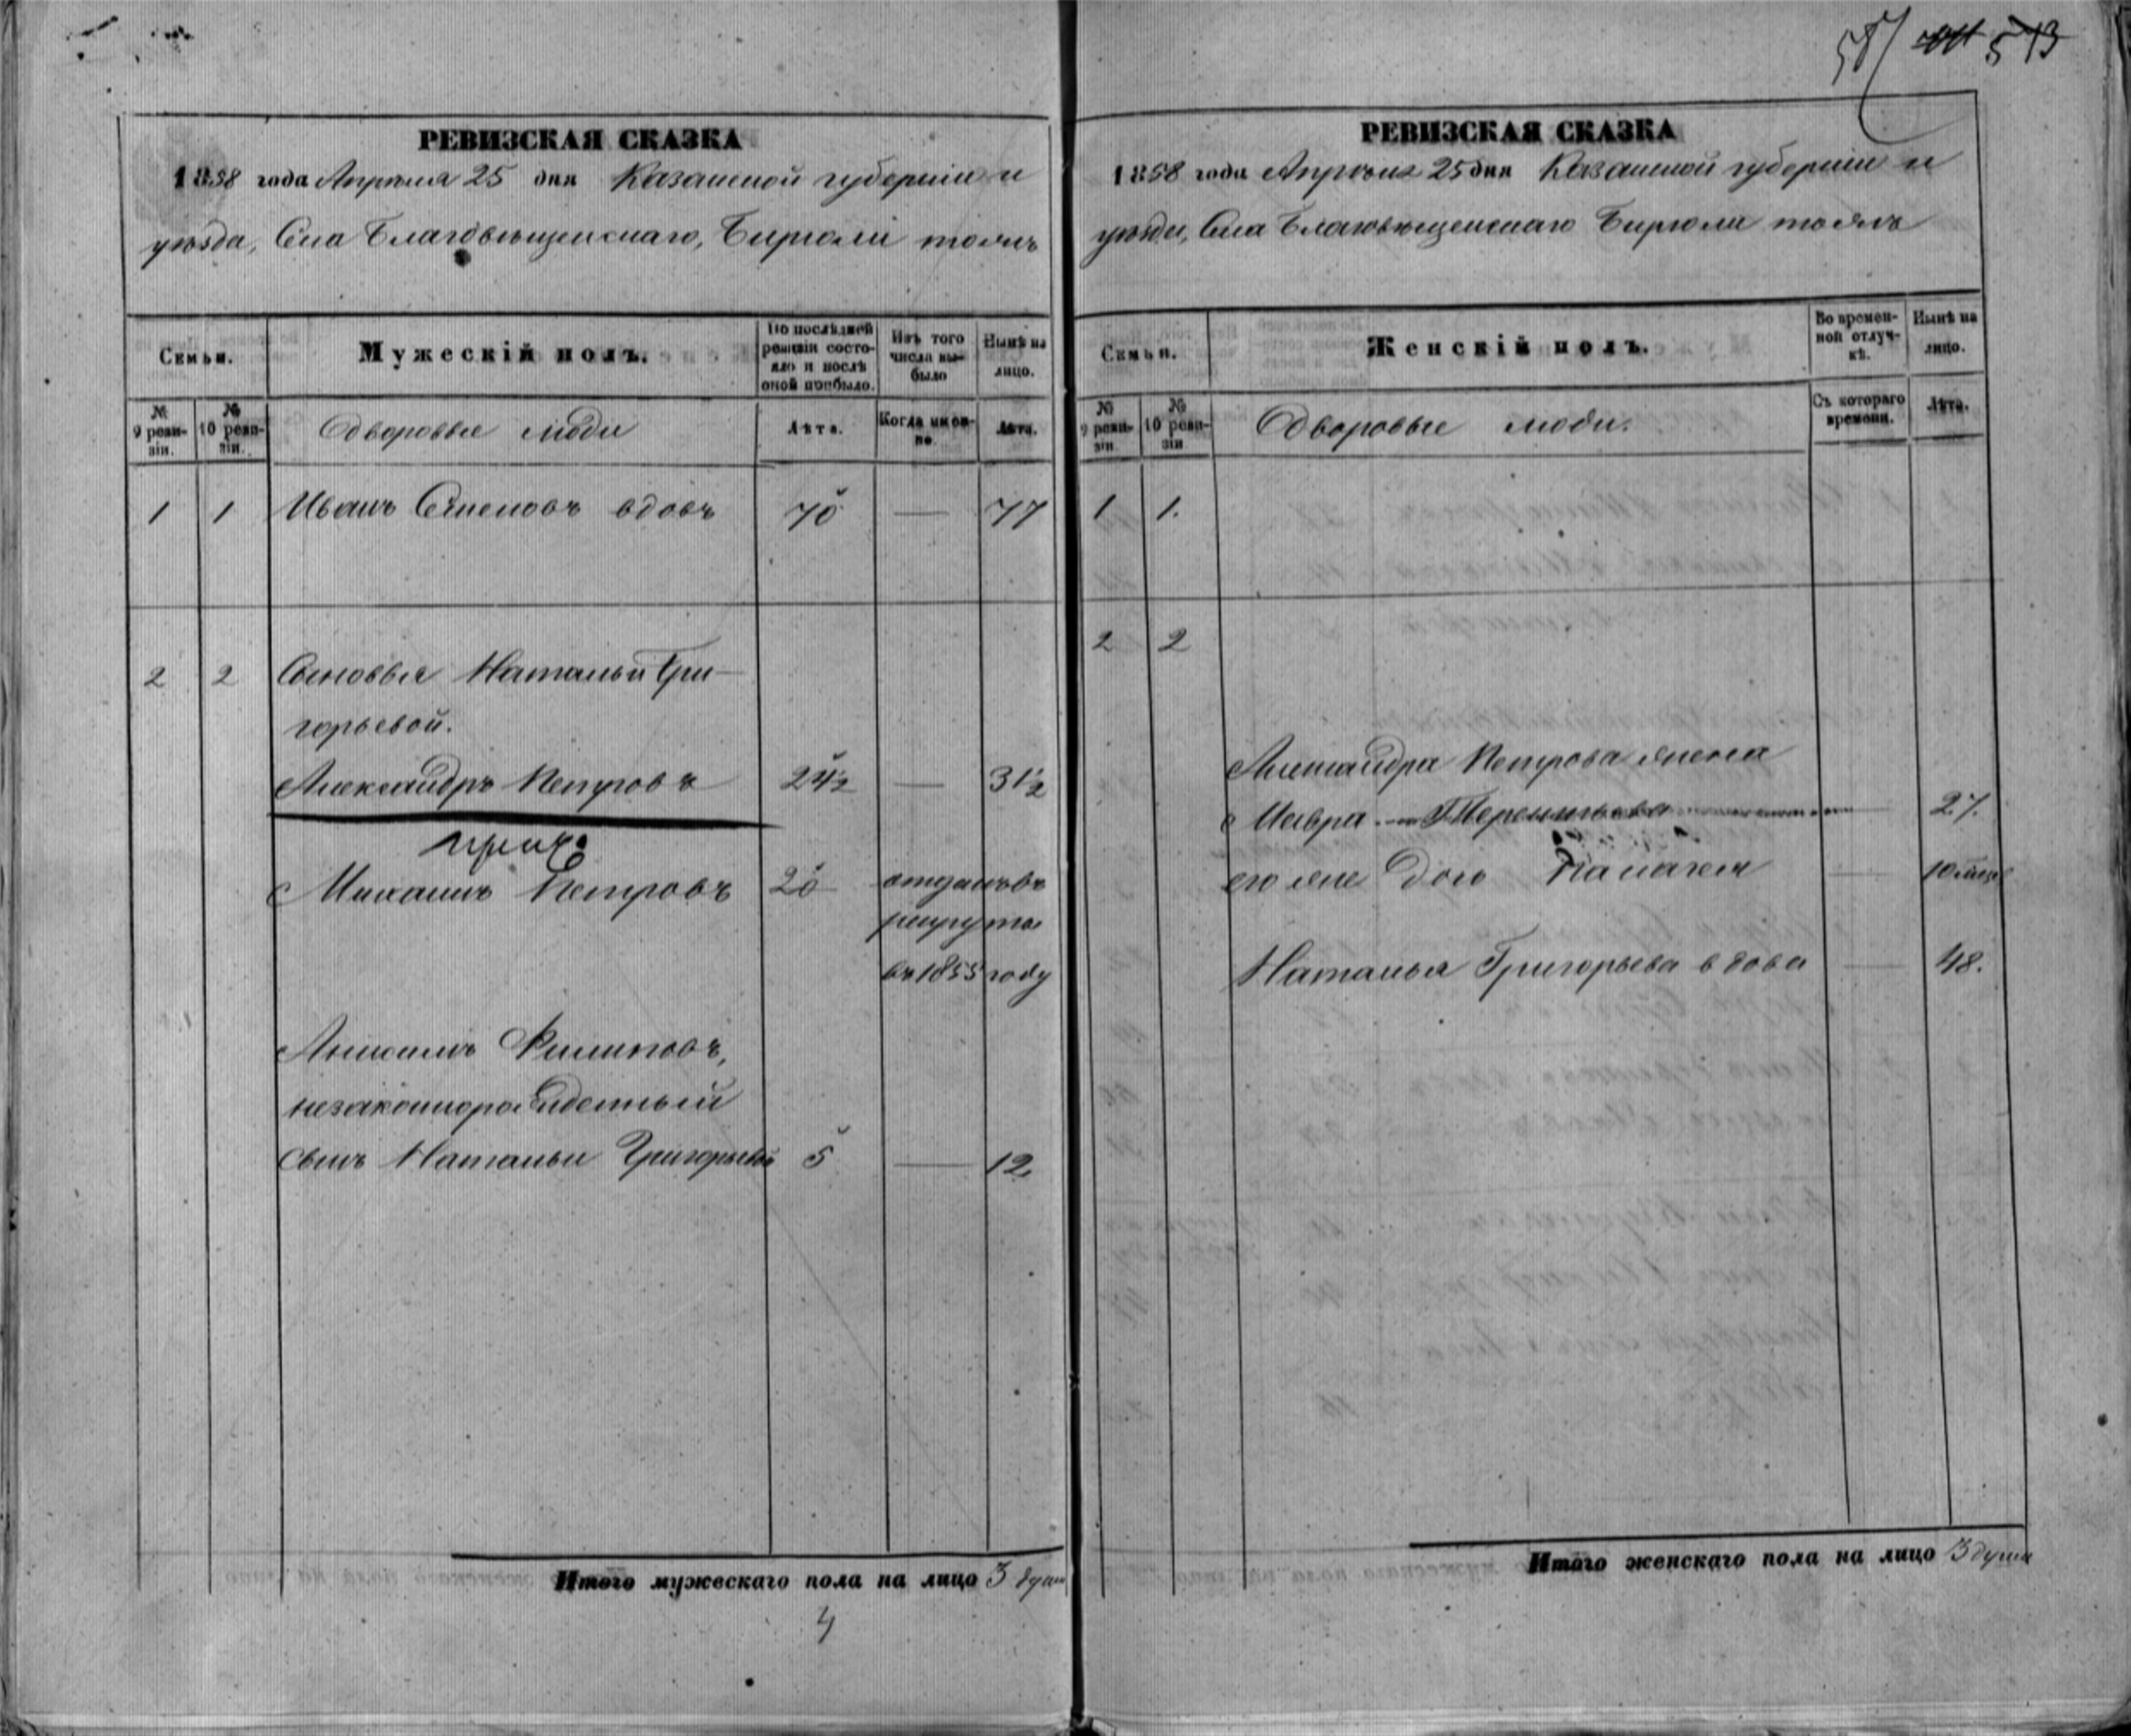 513
РЕВИЗСКАЯ СКАЗКА
1858 года Апрѣля 25 дня Казанской губерніи и
уѣзда, Села Благовѣщенскаго, Бирюли тожъ
Семьи.
Мужескій полъ.
По послѣдней ревизіи состояло и послѣ оной прибыло.
Изъ того числа выбыло
Нынѣ на лицо.
№ 9 ревизіи.
№ 10 ревизіи.
Дворовые люди
Лѣта.
Когда именно.
Лѣта.
1 1 Иванъ Семеновъ вдовъ 70 — 77
2 2 Сыновья Натальи Гри-
горьевой.
Александръ Петровъ 24½ — 31½
Михаилъ Петровъ 20 отданъ въ
рекруты
въ 1855 году
Филиповъ,
незаконорожденный
сынъ Натальи Григорьевой 5 — 12
Итого мужескаго пола на лицо 3 души
4
РЕВИЗСКАЯ СКАЗКА
1858 года Апрѣля 25 дня Казанской губерніи и
уѣзда, Села Благовѣщенскаго Бирюли тожъ
Семьи.
Женскій полъ.
Во временной отлучкѣ.
Нынѣ на лицо.
№ 9 ревизіи
№ 10 ревизіи
Дворовые люди.
Съ котораго времени.
Лѣта.
1 1.
2 2
Александра Петрова жена
Мавра Терентьева — 27.
его же дочь —
Наталья Григорьева вдова — 48.
Итого женскаго пола на лицо 3 души